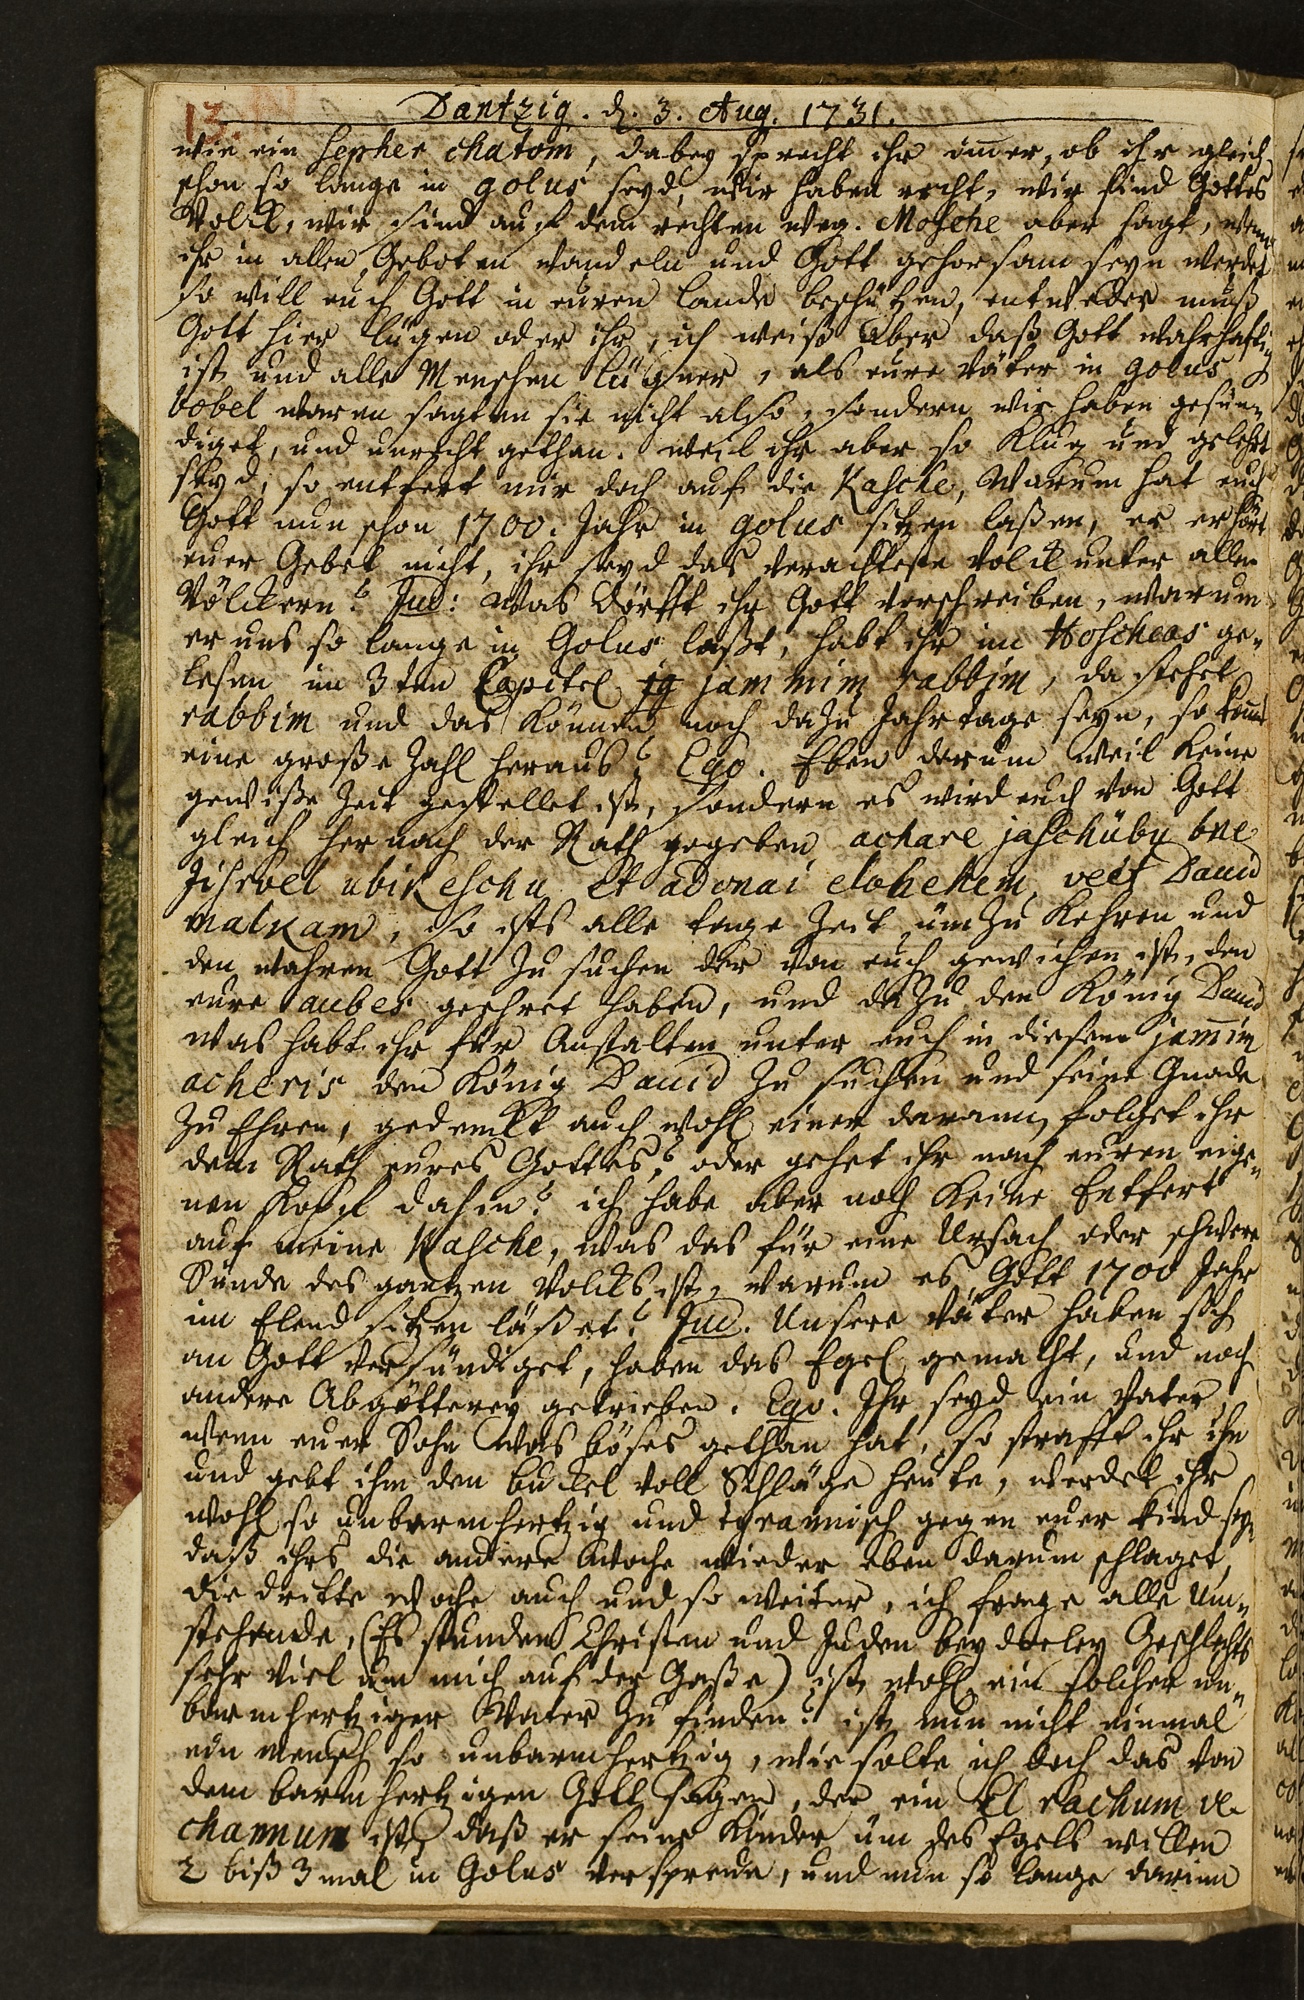 13.
Dantzig. d. 3. Aug. 1731.
wie ein Sepher chatom, dabey sprecht ihr im̄er, ob ihr gleich
schon so lange in golus seyd, wir haben recht, wir sind Gottes
Volck, wir sind auf dem rechten Weg. Mosche aber sagt, wenn
ihr in allen Geboten wandeln und Gott gehorsam seyn werdet
so will euch Gott in euren Lande beschützen, entweder muß
Gott hier lügen oder ihr, ich weiß aber daß Gott wahrhafftig
ist und alle Menschen lügner, als eure Väter in golus
bobel waren sagten sie nicht also, sondern wir haben gesün-
diget, und unrecht gethan. weil ihr aber so klug und gelehrt
seyd, so entfert mir doch auf die Kasche, Warum hat euch
Gott nun schon 1700. Jahr in golus sitzen laßen, er erhört
euer Gebet nicht, ihr seyd das verachteste Volck unter allen
Völckern? Jud: Was dörfft ihr Gott vorschreiben, warum
er uns so lange in Golus laßt, habt ihr im Hoscheas ge-
lesen im 3ten Capitel jammim rabbim, da stehet
rabbim und das können noch dazu Jahrtage seyn, so kom̄t
eine große Zahl heraus? Ego. Eben darum weil keine
gewiße Zeit gestellet ist, sondern es wird euch von Gott
gleich hernach der Rath gegeben achare jaschuby bne
Jisroel ubikeschu et adonai elohekem veet David
malkam, So ists alle tage Zeit umzu kehren und
den wahren Gott zu suchen der von euch gewichen ist, den
eure aubes geehret haben, und dazu den König David
was habt ihr für Anstalten unter euch in diesem jam̄im
acheris den König David zu suchen und seine Gnade
zu Ehren, gedenckt auch wohl einer daran, folget ihr
dem Rath eures Gottes? oder gehet ihr nach euren eige-
nen Kopf dahin? ich habe aber noch keine Entfert
auf meine Kasche, was das für eine Ursach oder schwere
Sünde des gantzen Volcks ist, warum es Gott 1700 Jahr
im Elend sitzen läßet? Jud. Unsere Väter haben sich
an Gott versündiget, haben das Egel gemacht, und noch
andere Abgötterey getrieben. Ego. Ihr seyd ein Vater,
wenn euer Sohn was böses gethan hat, so strafft ihr ihn
und gebt ihm den buckel voll Schläge heute, werdet ihr
wohl so unbarmhertzig und tyrannisch gegen euer Kind seyn
daß ihrs die andere Woche wieder eben darum schlaget,
die dritte Woche auch und so weiter, ich frage alle um-
stehende, (Es stunden Christen und Juden beyderley Geschlechts
sehr viel um mich auf der Gaße) ist wohl ein solcher un-
barmhertziger Vater zu finden? ist nun nicht einmal
ein Mensch so unbarmhertzig, wie solte ich doch das von
dem barmhertzigen Gott sagen, der ein El rachum ve
channum ist, daß er seine Kinder um des Egels willen
2 biß 3 mal in Golus verstreue, und nun so lange darinn